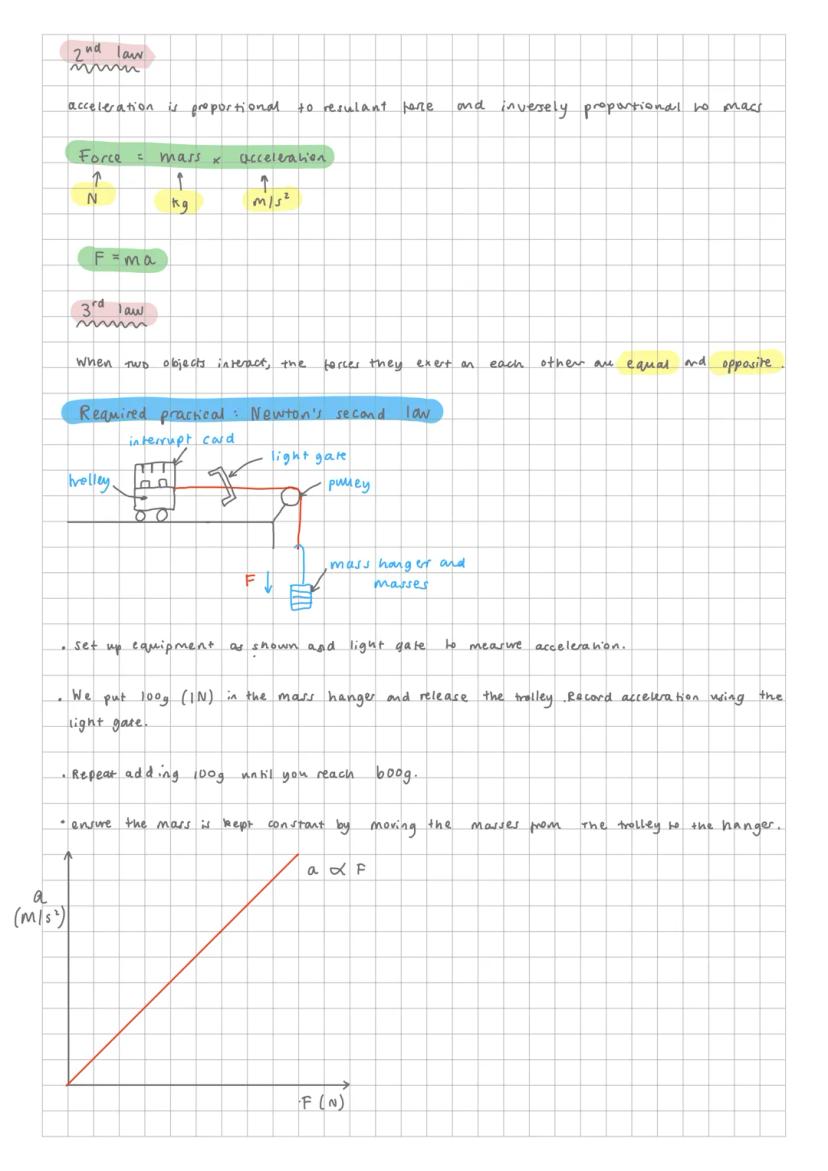 2nd law
acceleration is proportional to resulant force and inversely proportional to mass
Force = mass x acceleration
↑ ↑ ↑
N kg m/s²
F = ma
3rd law
When two objects interact, the forces they exert on each other are equal and opposite.
Required practical: Newton's second law
interrupt card
light gate
trolley
pulley
mass hanger and
F ↓
masses
• set up equipment as shown and light gate to measure acceleration.
• We put 100g (1N) in the mass hanger and release the trolley. Record acceleration using the
light gate.
• Repeat adding 100g until you reach 600g.
• ensure the mass is kept constant by moving the masses from the trolley to the hanger.
a ∝ F
a
(m/s²)
F (N)